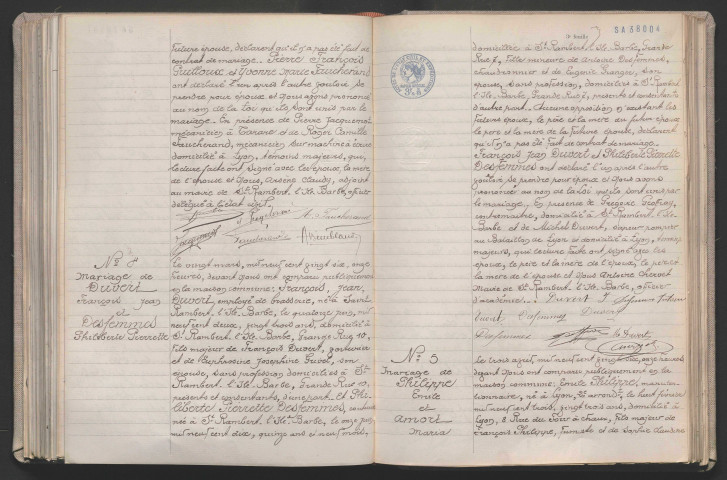 future épouse, déclarent qu'il n'a pas été fait de
contrat de mariage. Pierre François
Guilloux et Yvonne Marie Faucherand
ont déclaré l'un après l'autre vouloir se
prendre pour époux et nous avons prononcé
au nom de la loi qu'ils sont unis par le
mariage. En présence de Pierre Jacquemot
mécanicien à et de Roger Camille
Faucherand, mécanicien sur machine à écrire
domicilié à Lyon, témoins majeurs, qui,
lecture faite ont signé avec les époux, la mère
de l'épouse et Nous, Arsène Claudy, adjoint
au maire de St Rambert l'Ile Barbe, officier
délégué à l'état civil.
Jacquemot
Nº 4
Mariage de
Duvert
François Jean
et
Desfemmes
Philiberte Pierrette
Le vingt mars, mil neuf cent vingt six, onze
heures, devant nous ont comparu publiquement
en la maison commune: François, Jean,
Duvert, employé de brasserie, né à Saint
Rambert l'Ile Barbe, le quatorze mai, mil
neuf cent deux, vingt trois ans, domicilié à
St Rambert l'Ile Barbe, Grande Rue 10,
fils majeur de François Duvert,
et de Euphrosine Joséphine son
épouse, sans profession domiciliés à St
Rambert l'Ile Barbe, Grande Rue 10,
présents et consentants, d'une part. Et Phi-
liberte Pierrette Desfemmes,
née à St Rambert l'Ile Barbe, le onze
mil neuf cent
SA38004
domiciliée à St Rambert l'Ile Barbe, Grande
Rue fille mineure de Antoine Desfemmes,
chaudronnier et de Eugénie son
épouse, sans profession, domiciliés à St Rambert
l'Ile Barbe, Grande Rue présents et consentants
d'autre part. Aucune opposition n'existant les
futurs époux, le père et la mère du futur époux
le père et la mère de la future épouse, déclarent
qu'il n'a pas été fait de contrat de mariage.
François Jean Duvert et Philiberte Pierrette
Desfemmes ont déclaré l'un après l'autre
vouloir se prendre pour époux et Nous avons
prononcé au nom de la loi qu'ils sont unis par
le mariage. En présence de Frédéric
contremaître, domicilié à St Rambert l'Ile
Barbe et de Michel Duvert, sapeur pompier
au Bataillon de Lyon et domicilié à Lyon, témoins
majeurs, qui lecture faite ont signé avec les
époux, le père et la mère de l'époux, le père et
la mère de l'épouse et Nous Antoine
Maire de St Rambert l'Ile Barbe, officier
d'académie. Duvert
Duvert Desfemmes Duvert
Desfemmes
Nº 5
Mariage de
Philippe
Emile
et
Amort
Maria
Le trois avril, mil neuf cent vingt six, onze heures
devant nous ont comparu publiquement en la
maison commune: Emile Philippe, manuten-
tionnaire, né à Lyon, le huit février
mil neuf cent trois, vingt trois ans, domicilié à
Lyon, Rue du Four à chaux, fils majeur de
François Philippe, et de Sophie